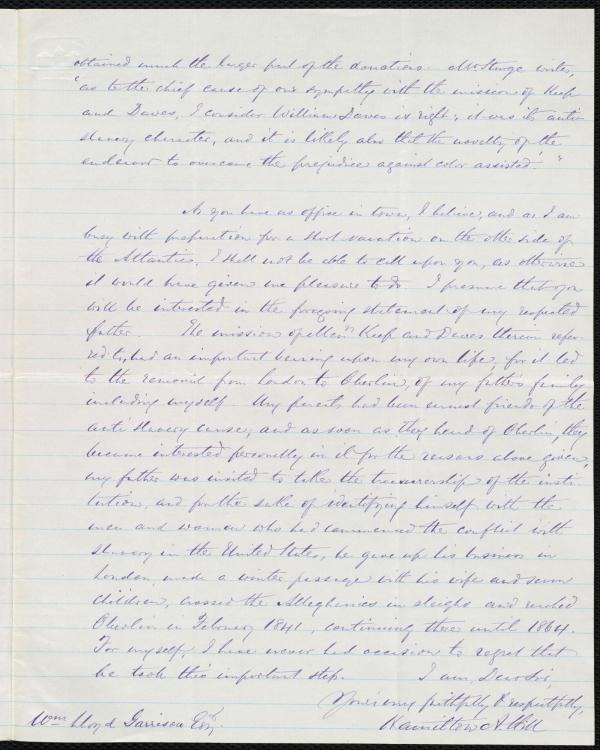 obtained much the larger part of the donations. Mr. Sturge writes,
"as to the chief cause of our sympathy with the mission of Keep
and Dawes, I consider William Dawes is right; it was its anti-
slavery character, and it is likely also that the novelty of the
endeavor to overcome the prejudice against color assisted."
As you have no office in town, I believe, and as I am
busy with preparation for a short vacation on the other side of
the Atlantic, I shall not be able to call upon you, as otherwise
it would have given me pleasure to do. I presume that you
will be interested in the foregoing statement of my respected
father. The mission of Messrs Keep and Dawes therein refer-
red to, had an important bearing upon my own life, for it led
to the removal from London to Oberlin, of my father's family
including myself. My parents had been earnest friends of the
anti slavery cause, and as soon as they heard of Oberlin, they
became interested personally in it for the reasons above given,
my father was invited to take the treasurership of the insti-
tution, and for the sake of identifying himself with the
men and women who had commenced the conflict with
slavery in the United States, he gave up his business in
London, made a winter passage with his wife and seven
children, crossed the Alleghenies in sleighs and reached
Oberlin in February 1841, continuing there until 1864.
For myself, I have never had occasion to regret that
he took this important step. I am, Dear Sir,
Yours very faithfully & respectfully,
Hamilton A. Hill
Wm Lloyd Garrison Esqr.